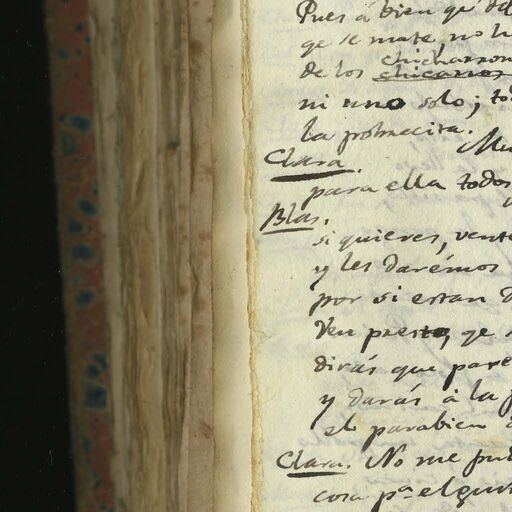 Pues á bien qe de
qe se mate, no h
chicharron
de los chicarros
ni uno solo; to
la pobrecita.
Clara. Mu
para ella todos
Blas.
si quieres, vente
y les darémos
por si estan
Ven presto, qe
dirás que pare
y darás á la
el parabien
Clara. No me pue
cosa pa el gui